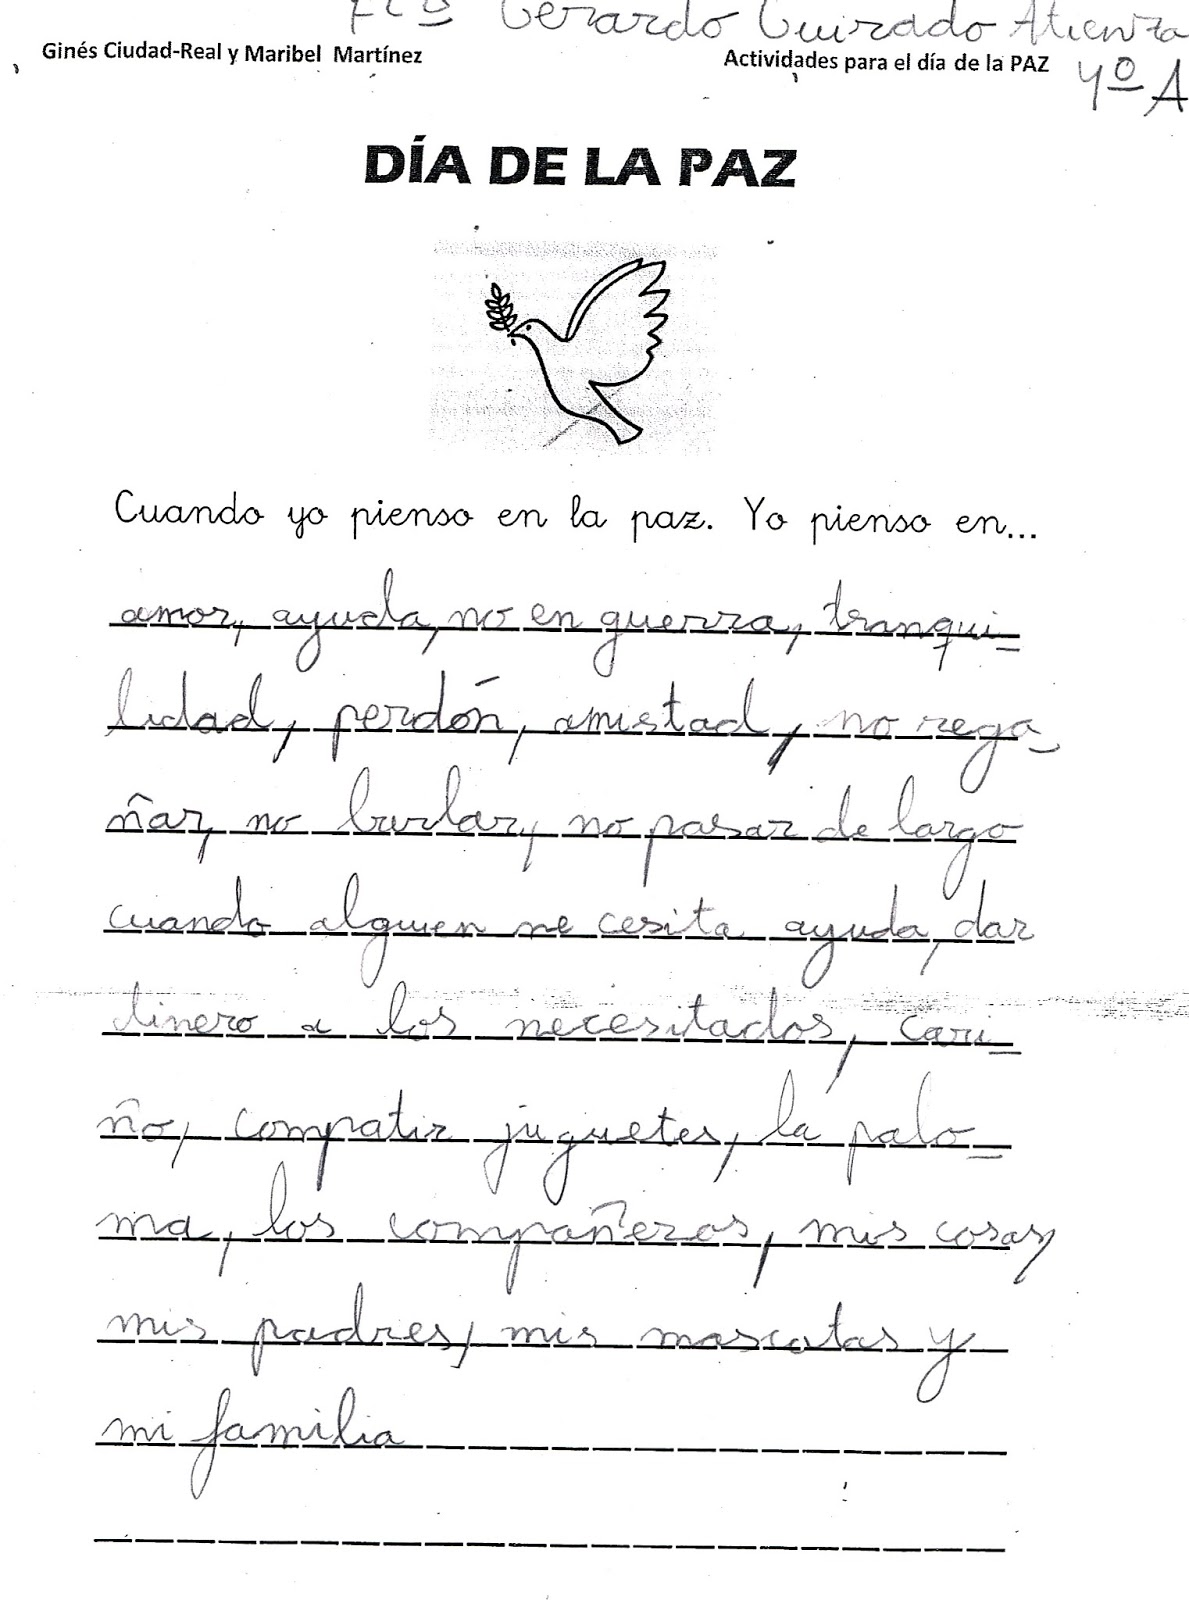 Fco Gerardo Guirado Atienza
Ginés Ciudad-Real y Maribel Martínez
Actividades para el día de la PAZ
4º A
DÍA DE LA PAZ
Cuando yo pienso en la paz. Yo pienso en...
amor, ayuda, no en guerra, tranqui-
lidad, perdón, amistad, no rega-
ñar, no burlar, no pasar de largo
cuando alguien ne cesita ayuda, dar
dinero a los necesitados, cari-
ño, compatir juguetes, la palo-
ma, los compañeros, mis cosas,
mis padres, mis mascotas y
mi familia